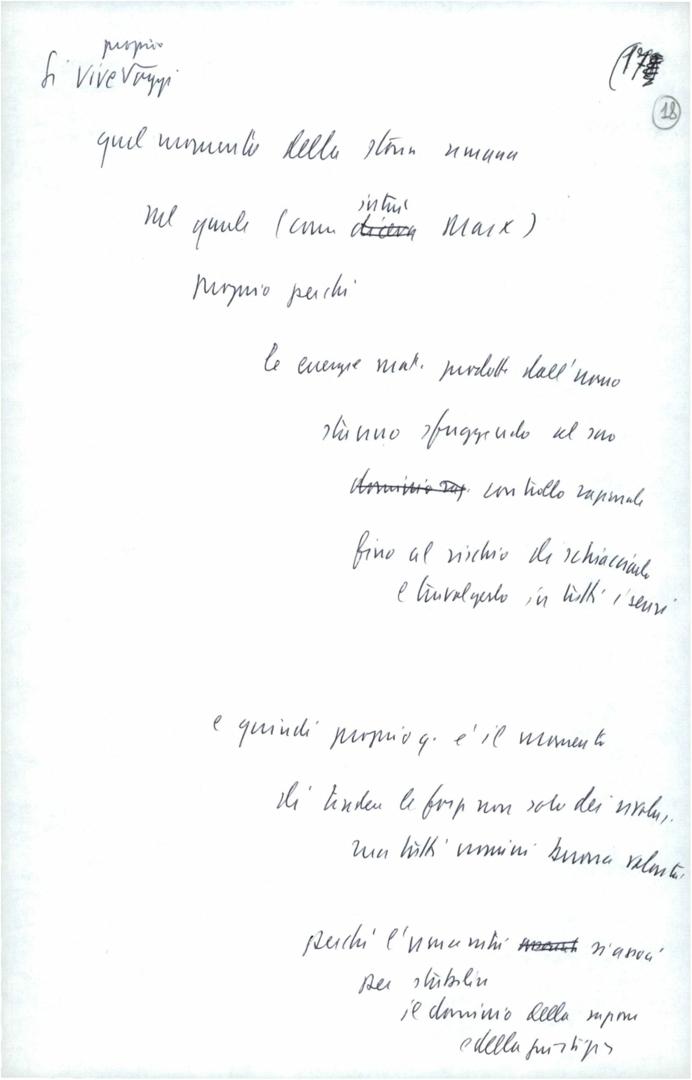 proprio
Si vive oggi
17
18
quel momento della storia umana
intuì
nel quale (come diceva Marx)
proprio perché
le energie mat. prodotte dall'uomo
stanno sfuggendo al suo
dominio raz. controllo razionale
fino al rischio di schiacciarlo
e travolgerlo in tutti i sensi
e quindi proprio q. è il momento
di tendere le forze non solo dei rivoluz.
ma tutti uomini buona volontà
perché l'umanità si associ
per stabilire
il dominio della ragione
e della giustizia